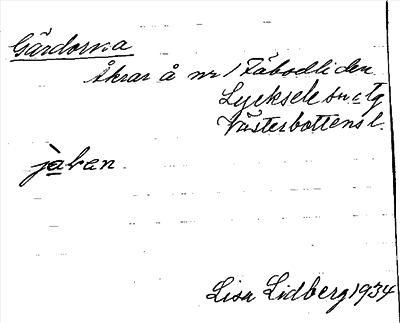 Gärdorna
Åkrar å nr 1 Fäbodliden
Lycksele sn o Tg
Västerbottens l.
Lisa Lidberg 1934